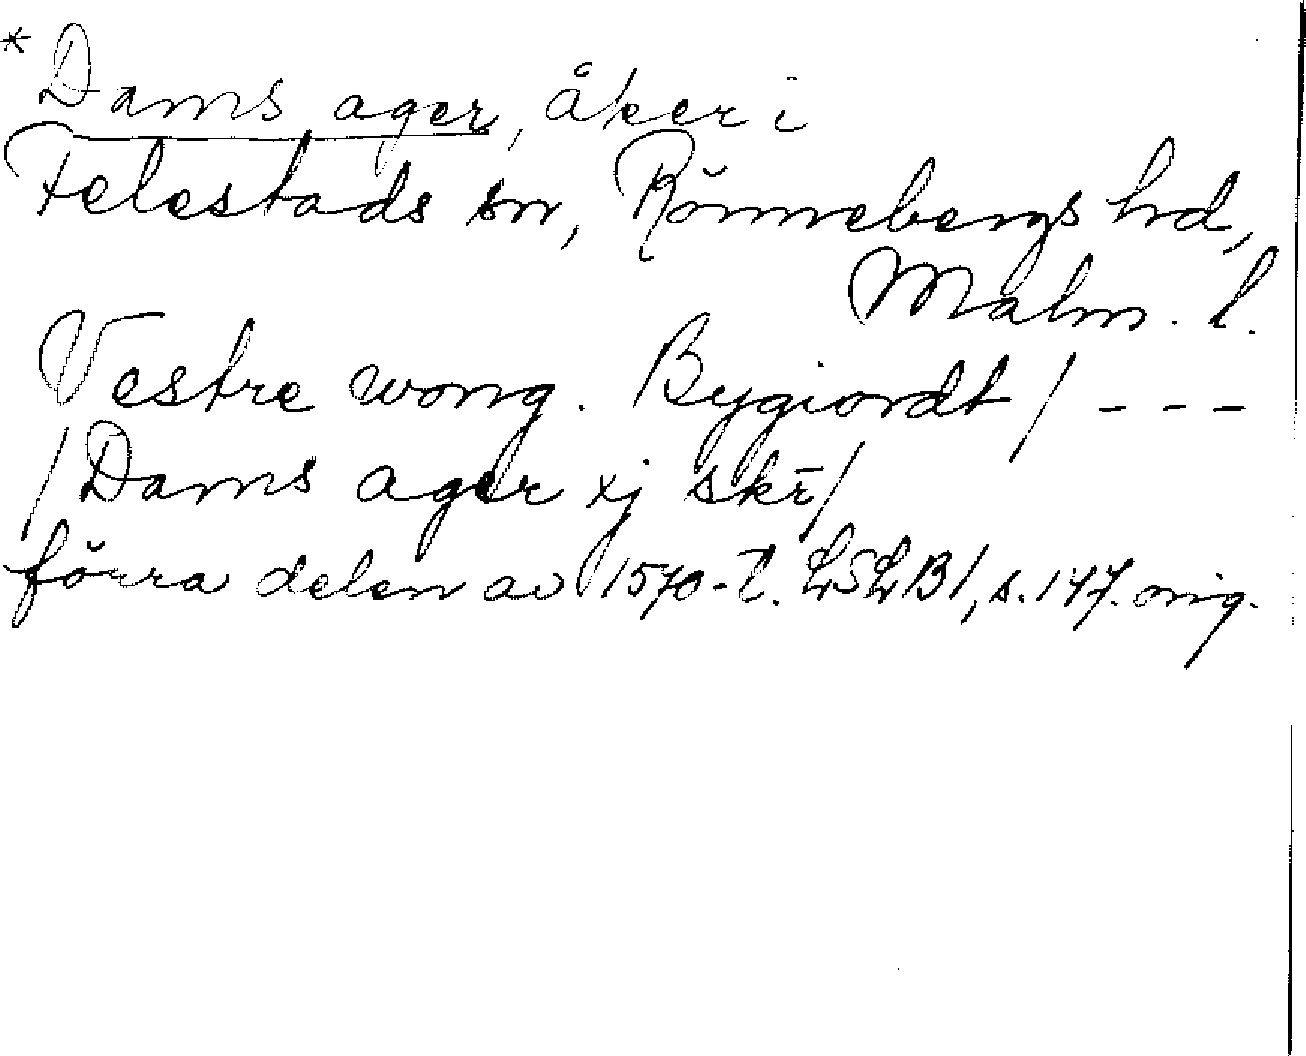 * Dams ager, åker i
Felestads sn, Rönnebergs hd,
Malm. l.
Vestre wong. Bygiordt / - - -
/ Dams ager xj skr̄ /
förra delen av 1570-t. LSLB1, s. 147. orig.